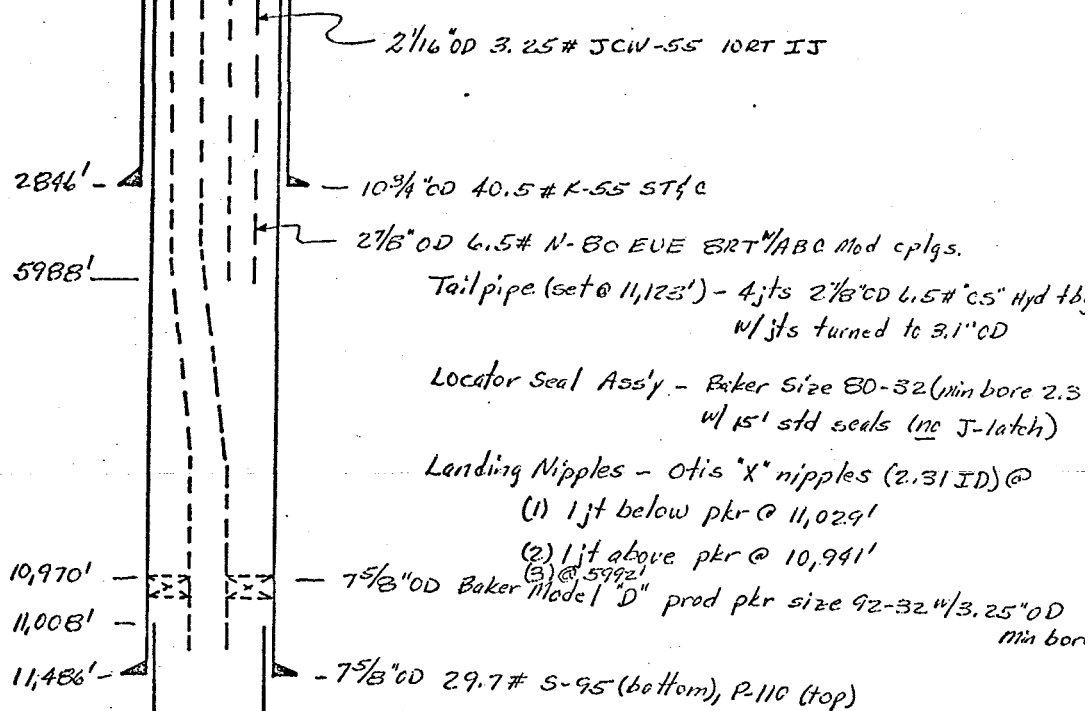 2 1/16" OD 3.25# JCW-55 10RT IJ
2846'
10 3/4" OD 40.5# K-55 ST&C
2 7/8" OD 6.5# N-80 EUE 8RT w/ABC Mod cplgs.
5988'
Tailpipe (set @ 11,123') - 4 jts 2 7/8" OD 6.5# "CS" Hyd tb
w/ jts turned to 3.1" OD
Locator Seal Ass'y - Baker Size 80-32 (min bore 2.3
w/ 15' std seals (no J-latch)
Landing Nipples - Otis "X" nipples (2.31 ID) @
(1) 1 jt below pkr @ 11,029'
(2) 1 jt above pkr @ 10,941'
(3) @ 5992'
10,970'
7 5/8" OD Baker Model "D" prod pkr size 92-32 w/3.25" OD
min bor
11,008'
11,486'
7 5/8" OD 29.7# S-95 (bottom), P-110 (top)